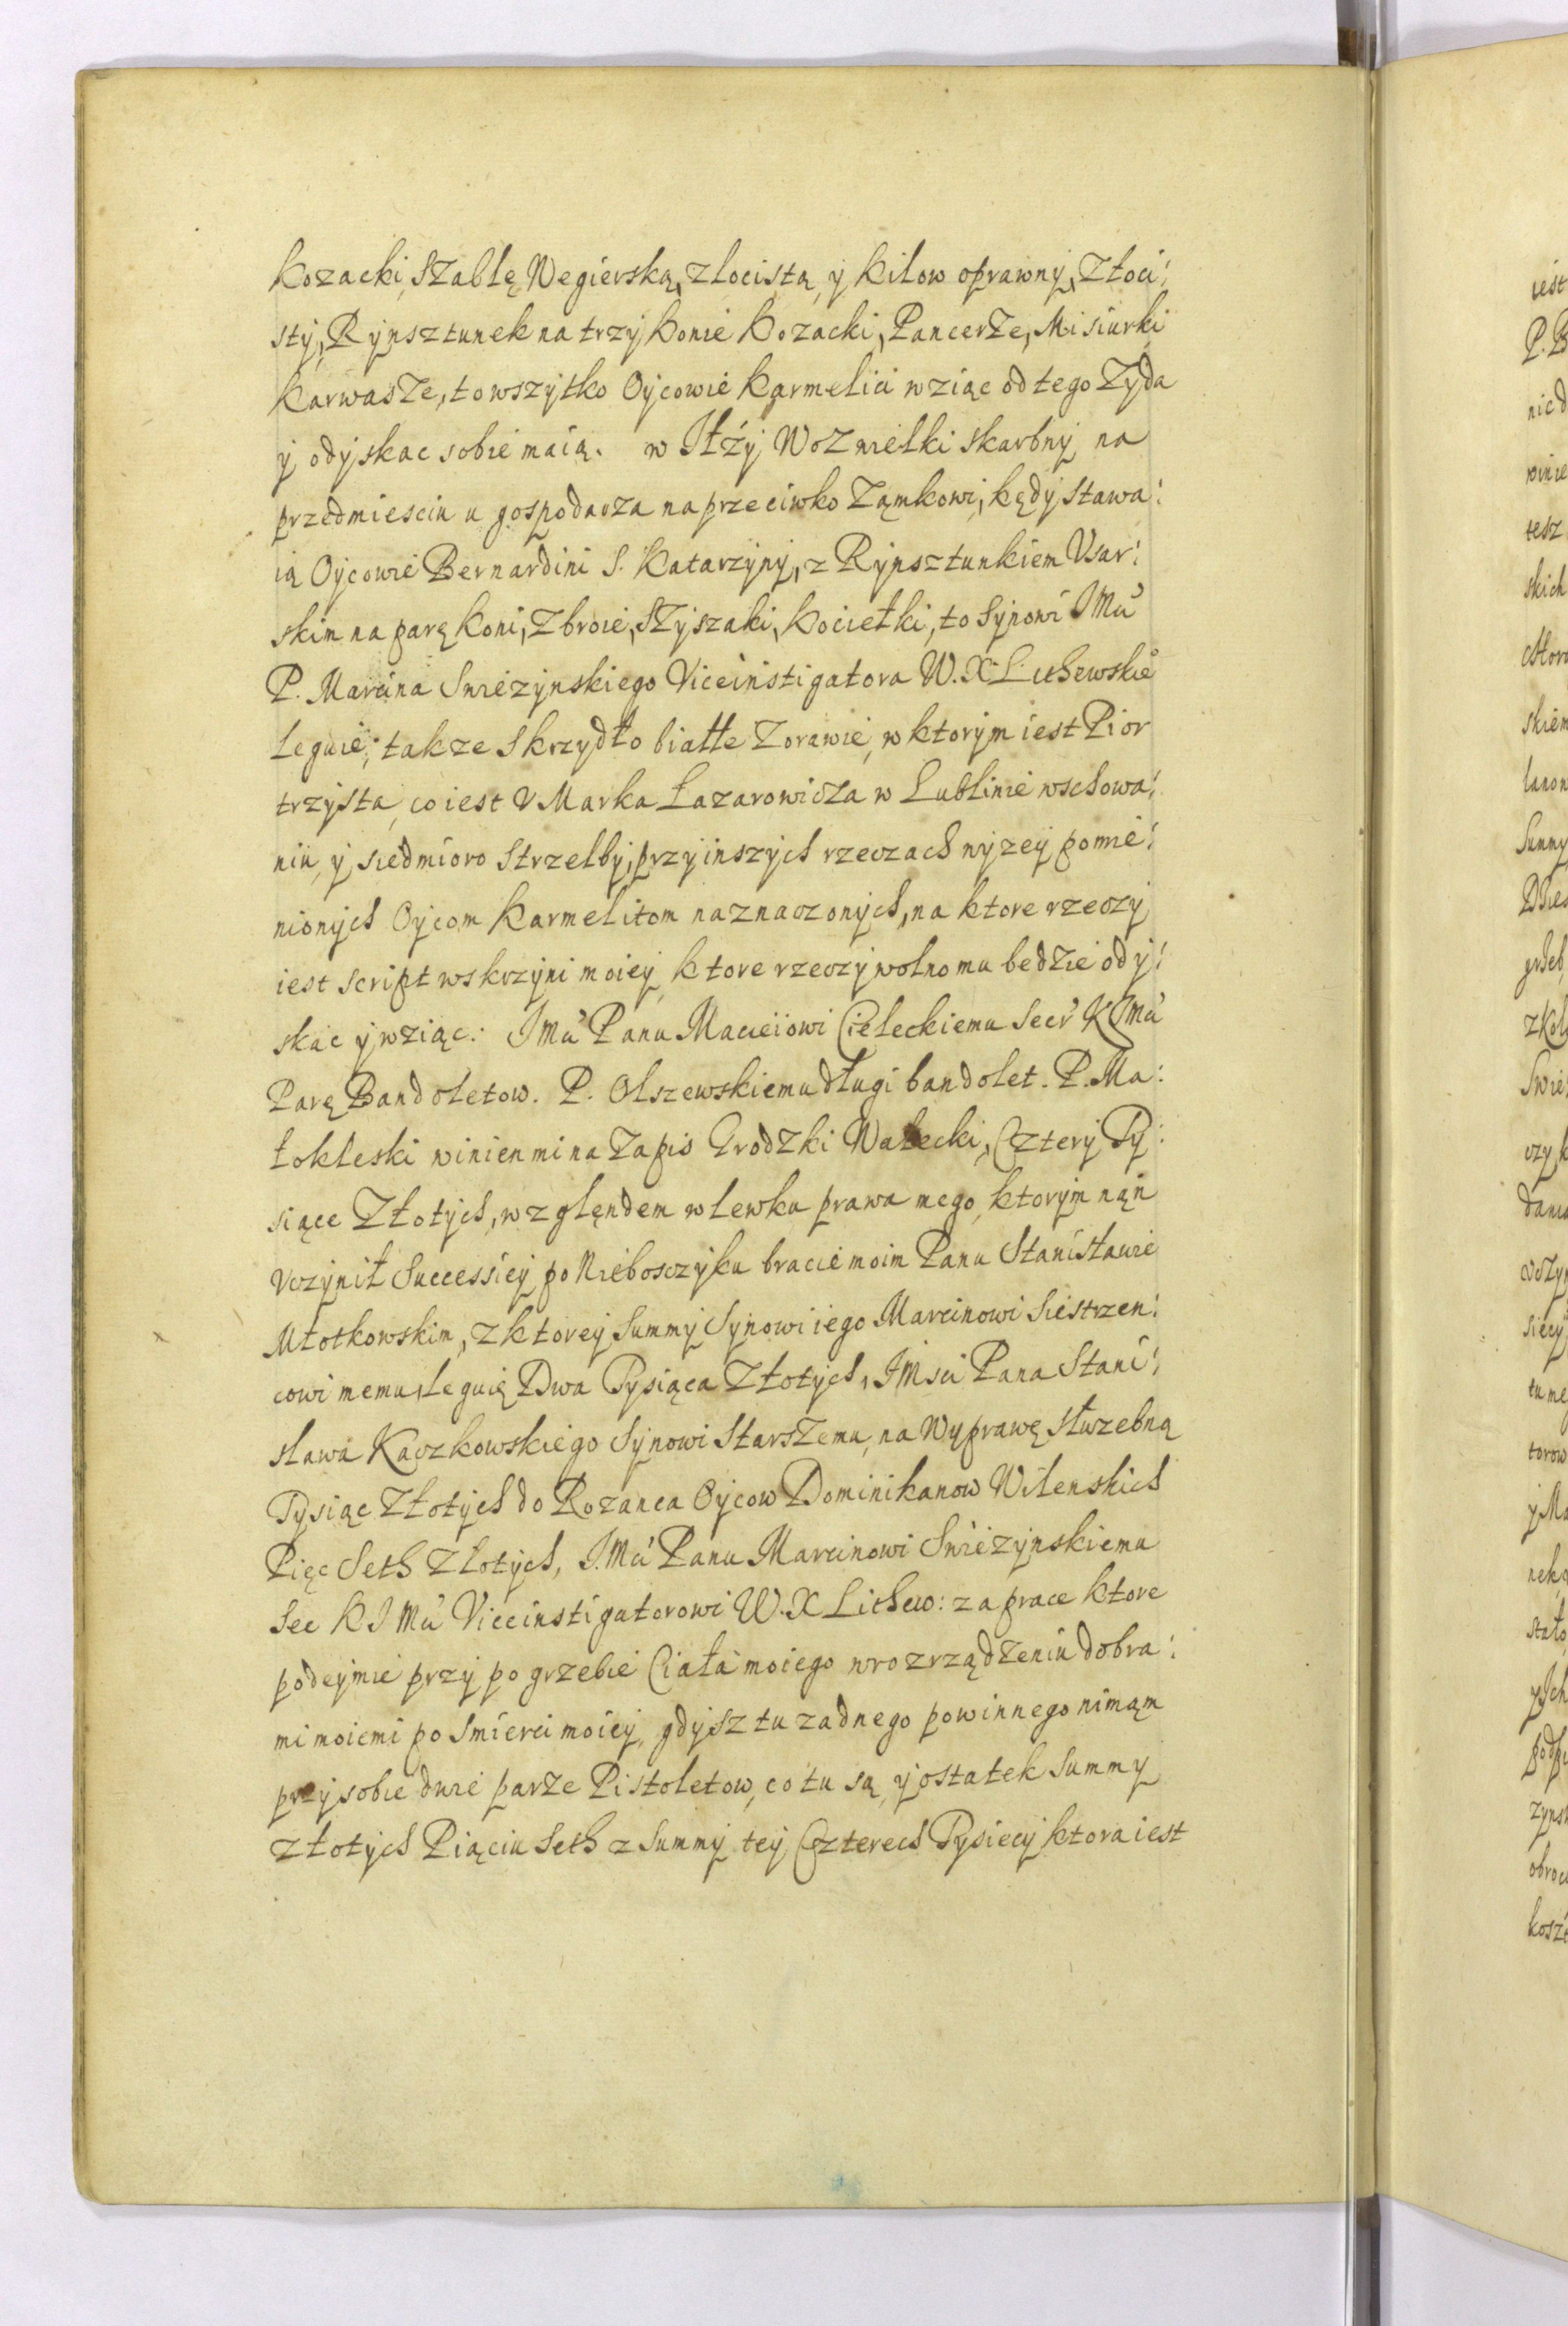 Kozacki, Szablę Wegierską, złocistą, y Kilow oprawny, Złoci:
sty, Rynsztunek na trzy Konie Kozacki, Pancerze, Misiurki
Karwasze, to wszytko Oycowie Karmelici wziąc od tego Zyda
y odyskac sobie maią. w Iłży Woz wielki skarbny na
przedmiesciu u gospodarza naprzeciwko Zamkowi, kędy stawa:
ią Oycowie Bernardini S. Katarzyny, z Rynsztunkiem Vsar:
skim na parę Koni, Zbroie, Szyszaki, Kociełki, to Synowi JMu
P. Marcina Snieżynskiego Viceinstigatora W. X. Lithewskie
Leguie, takze Skrzydło białłe Zorawie, w ktorym iest Pior
trzysta, co iest V Marka Łazarowicza w Lublinie wschowa:
niu, y siedmioro Strzelby, przy inszych rzeczach wyzey pomie:
nionych Oycom Karmelitom naznaczonych, na ktore rzeczy
iest script w skrzyni moiey, ktore rzeczy wolno mu bedzie ody:
skac y wziąc: JMu Panu Macieiowi Cieleckiemu Secr KJMu
Parę Bandoletow. P. Olszewskiemu długi bandolet. P. Ma:
łokleski winien mi na Zapis Grodzki Wałecki, Cztery Ty:
siące Złotych, względem wlewku prawa mego, ktorym nąn
Vczynił Successiey po Nieboszczyku bracie moim Panu Stanisławie
Młotkowskim, z ktorey Summy Synowi iego Marcinowi Siestrzen:
cowi memu, leguię Dwa Tysiąca Złotych, JMsci Pana Stani:
sława Kaczkowskiego Synowi Starszemu, na Wyprawę słuzebną
Tysiąc Złotych do Rozanca Oycow Dominikanow Wilenskich
Pięc Seth Złotych, J.Mu Panu Marcinowi Snieżynskiemu
Sec KJMu Viceinstigatorowi W. X Lithew: za prace ktore
podeymie przy pogrzebie Ciała moiego w rozrządzeniu dobra:
mi moiemi po Smierci moiey, gdysz tu zadnego powinnego nimąm
przy sobie dwie parze Pistoletow, co tu są, y ostatek Summy
złotych Piąciu Seth z Summy tey Czterech Tysiecy ktora iest